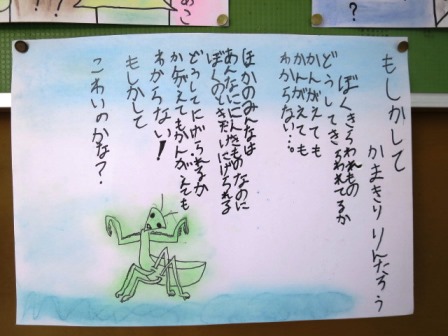 もしかして
かまきりりんたろう
ぼくきらわれもの
どうしてきらわれてるか
かんがえても
かんがえても
わからない…。
ほかのみんなは
あんなににんきものなのに
ぼくのときだけにげられる
どうしてにげられるか
かんがえてもかんがえても
わからない!
もしかして
こわいのかな?